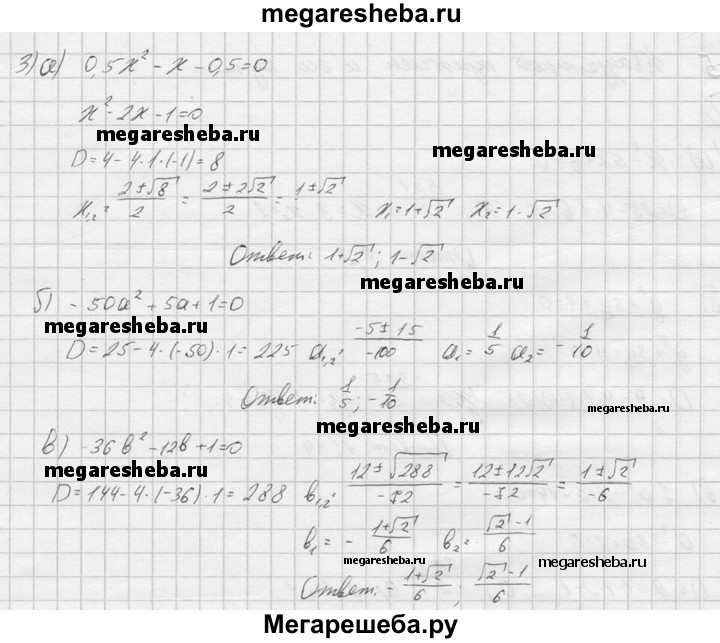 megaresheba.ru
3) а) 0,5x² - x - 0,5 = 0
x² - 2x - 1 = 0
megaresheba.ru
megaresheba.ru
D = 4 - 4·1·(-1) = 8
x₁,₂ = (2±√8)/2 = (2±2√2)/2 = 1±√2   x₁ = 1+√2   x₂ = 1-√2
Ответ: 1+√2; 1-√2
megaresheba.ru
б) -50a² + 5a + 1 = 0
megaresheba.ru
D = 25 - 4·(-50)·1 = 225   a₁,₂ = (-5±15)/-100   a₁ = 1/5   a₂ = -1/10
Ответ: 1/5; -1/10
megaresheba.ru
megaresheba.ru
в) -36b² - 12b + 1 = 0
megaresheba.ru
D = 144 - 4·(-36)·1 = 288   b₁,₂ = (12±√288)/-72 = (12±12√2)/-72 = (1±√2)/-6
b₁ = -(1+√2)/6   b₂ = (√2-1)/6
megaresheba.ru
megaresheba.ru
Ответ: -(1+√2)/6; (√2-1)/6
Мегарешеба.ру